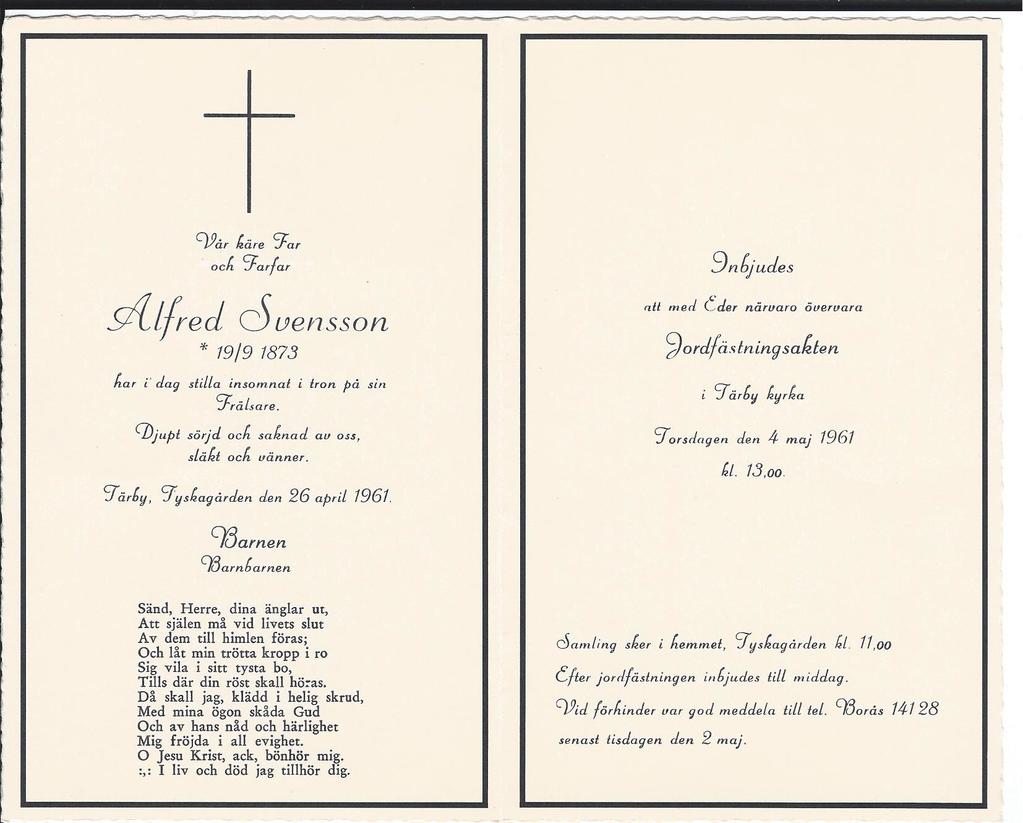 Vår käre Far
och Farfar
Alfred Svensson
* 19/9 1873
har i dag stilla insomnat i tron på sin
Frälsare.
Djupt sörjd och saknad av oss,
släkt och vänner.
Tärby, Tyskagården den 26 april 1961.
Barnen
Barnbarnen
Sänd, Herre, dina änglar ut,
Att själen må vid livets slut
Av dem till himlen föras;
Och låt min trötta kropp i ro
Sig vila i sitt tysta bo,
Tills där din röst skall höras.
Då skall jag, klädd i helig skrud,
Med mina ögon skåda Gud
Och av hans nåd och härlighet
Mig fröjda i all evighet.
O Jesu Krist, ack, bönhör mig.
:,: I liv och död jag tillhör dig.
Inbjudes
att med Eder närvaro övervara
Jordfästningsakten
i Tärby kyrka
Torsdagen den 4 maj 1961
kl. 13,00.
Samling sker i hemmet, Tyskagården kl. 11,00
Efter jordfästningen inbjudes till middag.
Vid förhinder var god meddela till tel. Borås 14128
senast tisdagen den 2 maj.